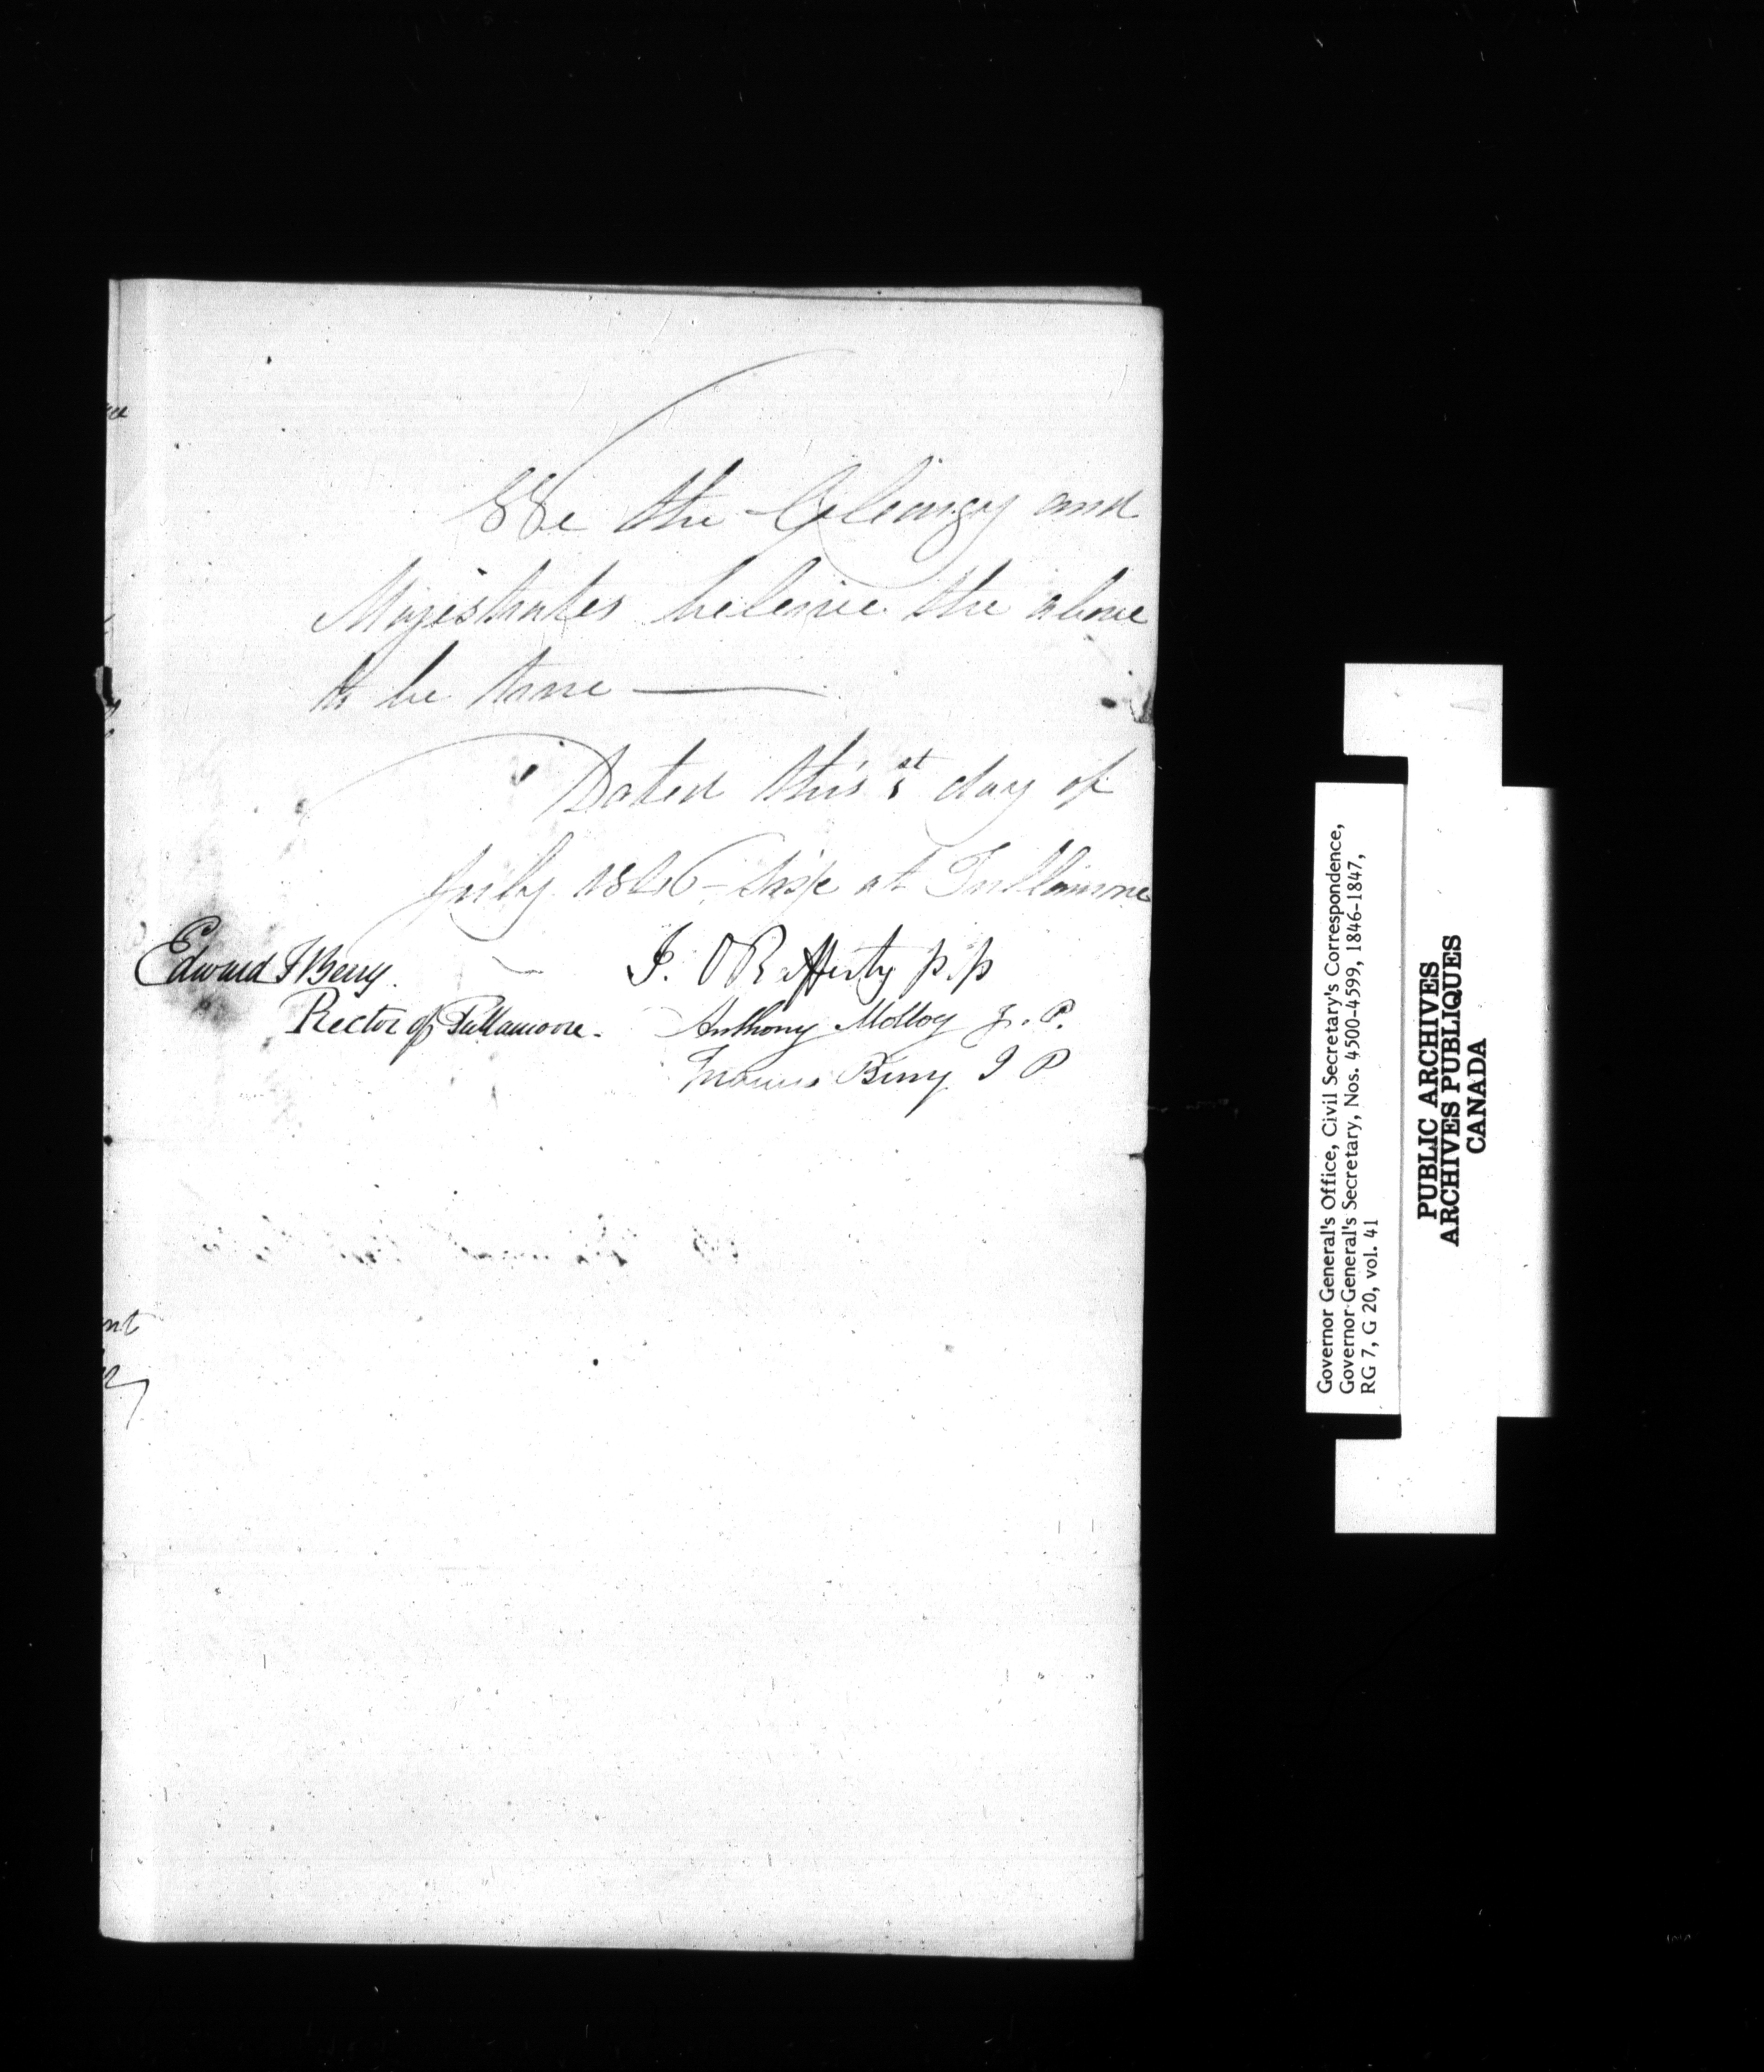 We the Clergy and
Magistrates believe the above
to be true
Dated this 1st day of
July 1846 - six at Tullamore
Edward F Berry.
Rector of Tullamore.
J. O Rafferty p.p
Anthony Molloy J. P.
Francis Berry J P
nt
Governor General's Office, Civil Secretary's Correspondence,
Governor General's Secretary, Nos. 4500-4599, 1846-1847,
RG 7, G 20, vol. 41
PUBLIC ARCHIVES
ARCHIVES PUBLIQUES
CANADA